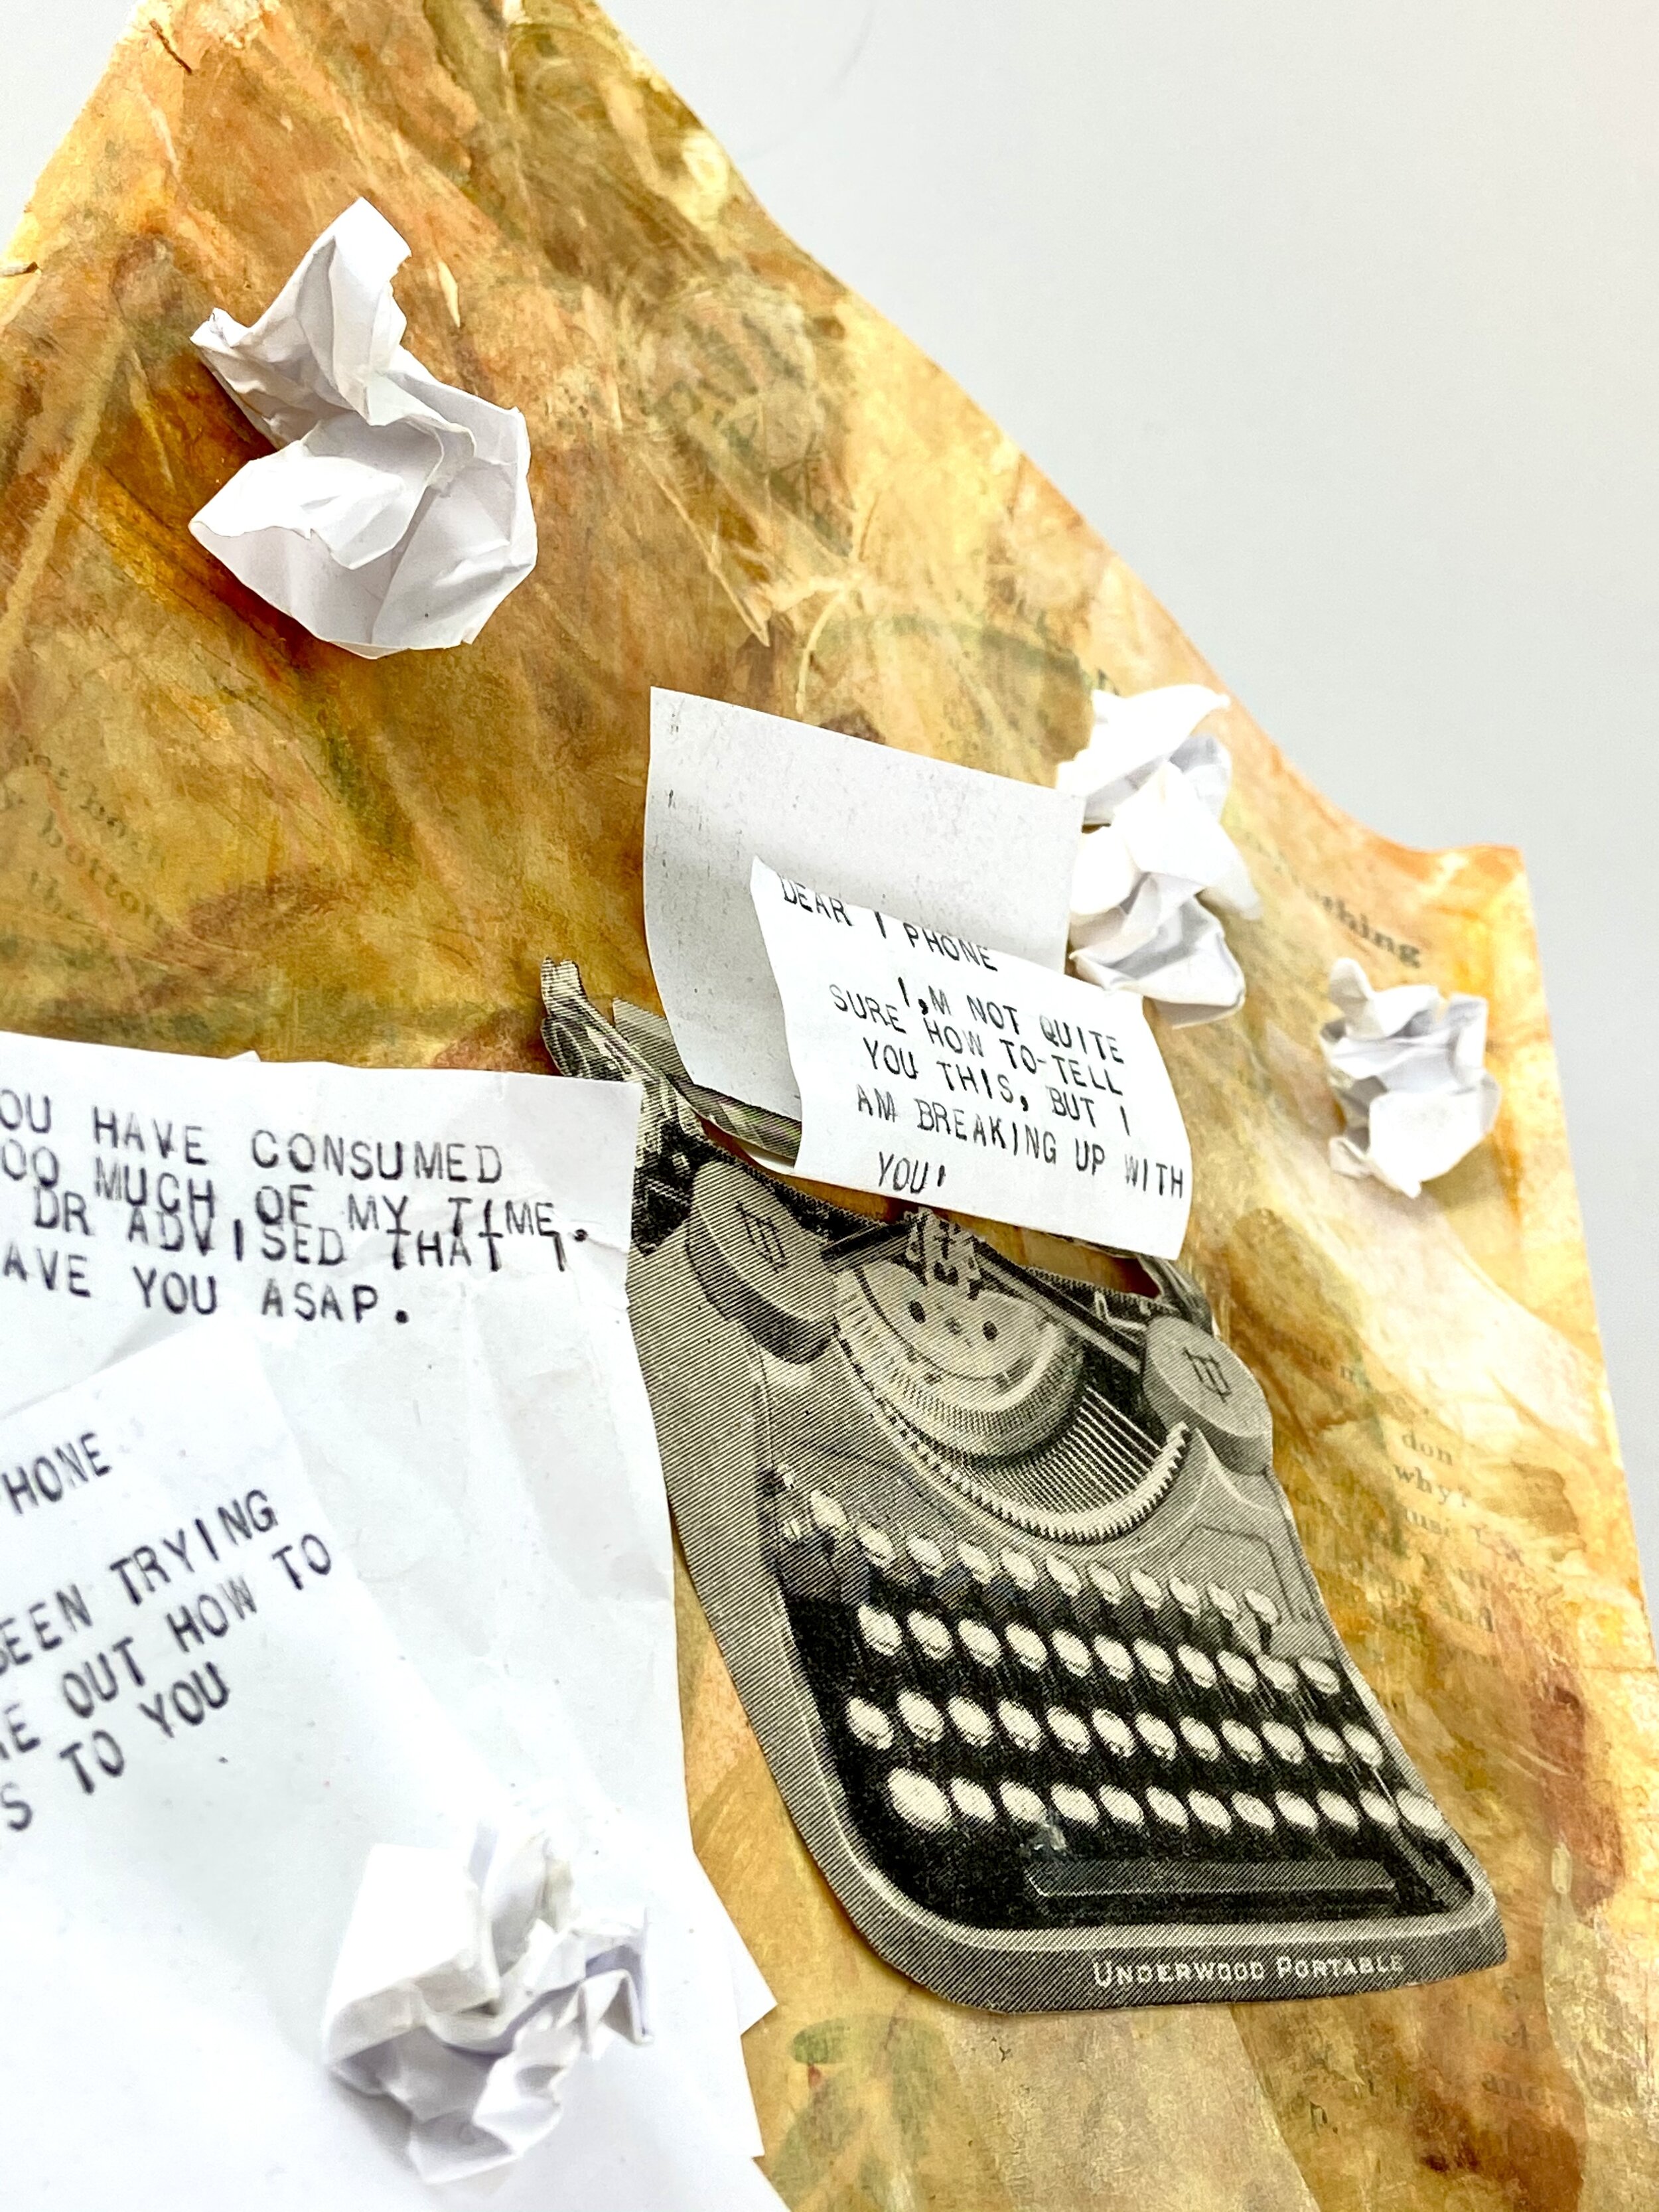 DEAR I PHONE
I,M NOT QUITE
SURE HOW TO-TELL
YOU THIS, BUT I
AM BREAKING UP WITH
YOU'
OU HAVE CONSUMED
OO MUCH OF MY TIME.
DR ADVISED THAT I
AVE YOU ASAP.
HONE
BEEN TRYING
E OUT HOW TO
S TO YOU
UNDERWOOD PORTABLE
bottom
the
thing
don
why?
and
and